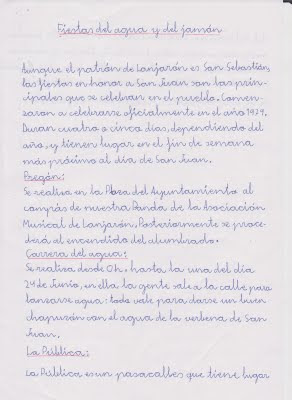 Fiestas del agua y del jamón
Aunque el patrón de Lanjarón es San Sebastián,
las fiestas en honor a San Juan son las prin-
cipales que se celebran en el pueblo. Comen-
zaron a celebrarse oficialmente en el año 1979.
Duran cuatro o cinco días, dependiendo del
año, y tienen lugar en el fin de semana
más próximo al día de San Juan.
Pregón:
Se realiza en la Plaza del Ayuntamiento al
compás de nuestra Banda de la Asociación
Musical de Lanjarón. Posteriormente se proce-
derá al encendido del alumbrado.
Carrera del agua:
Se realiza desde 0h. hasta la una del día
24 de Junio, en ella la gente sale a la calle para
lanzarse agua: todo vale para darse un buen
chapuzón con el agua de la verbena de San
Juan.
La Pública:
La Pública es un pasacalles que tiene lugar